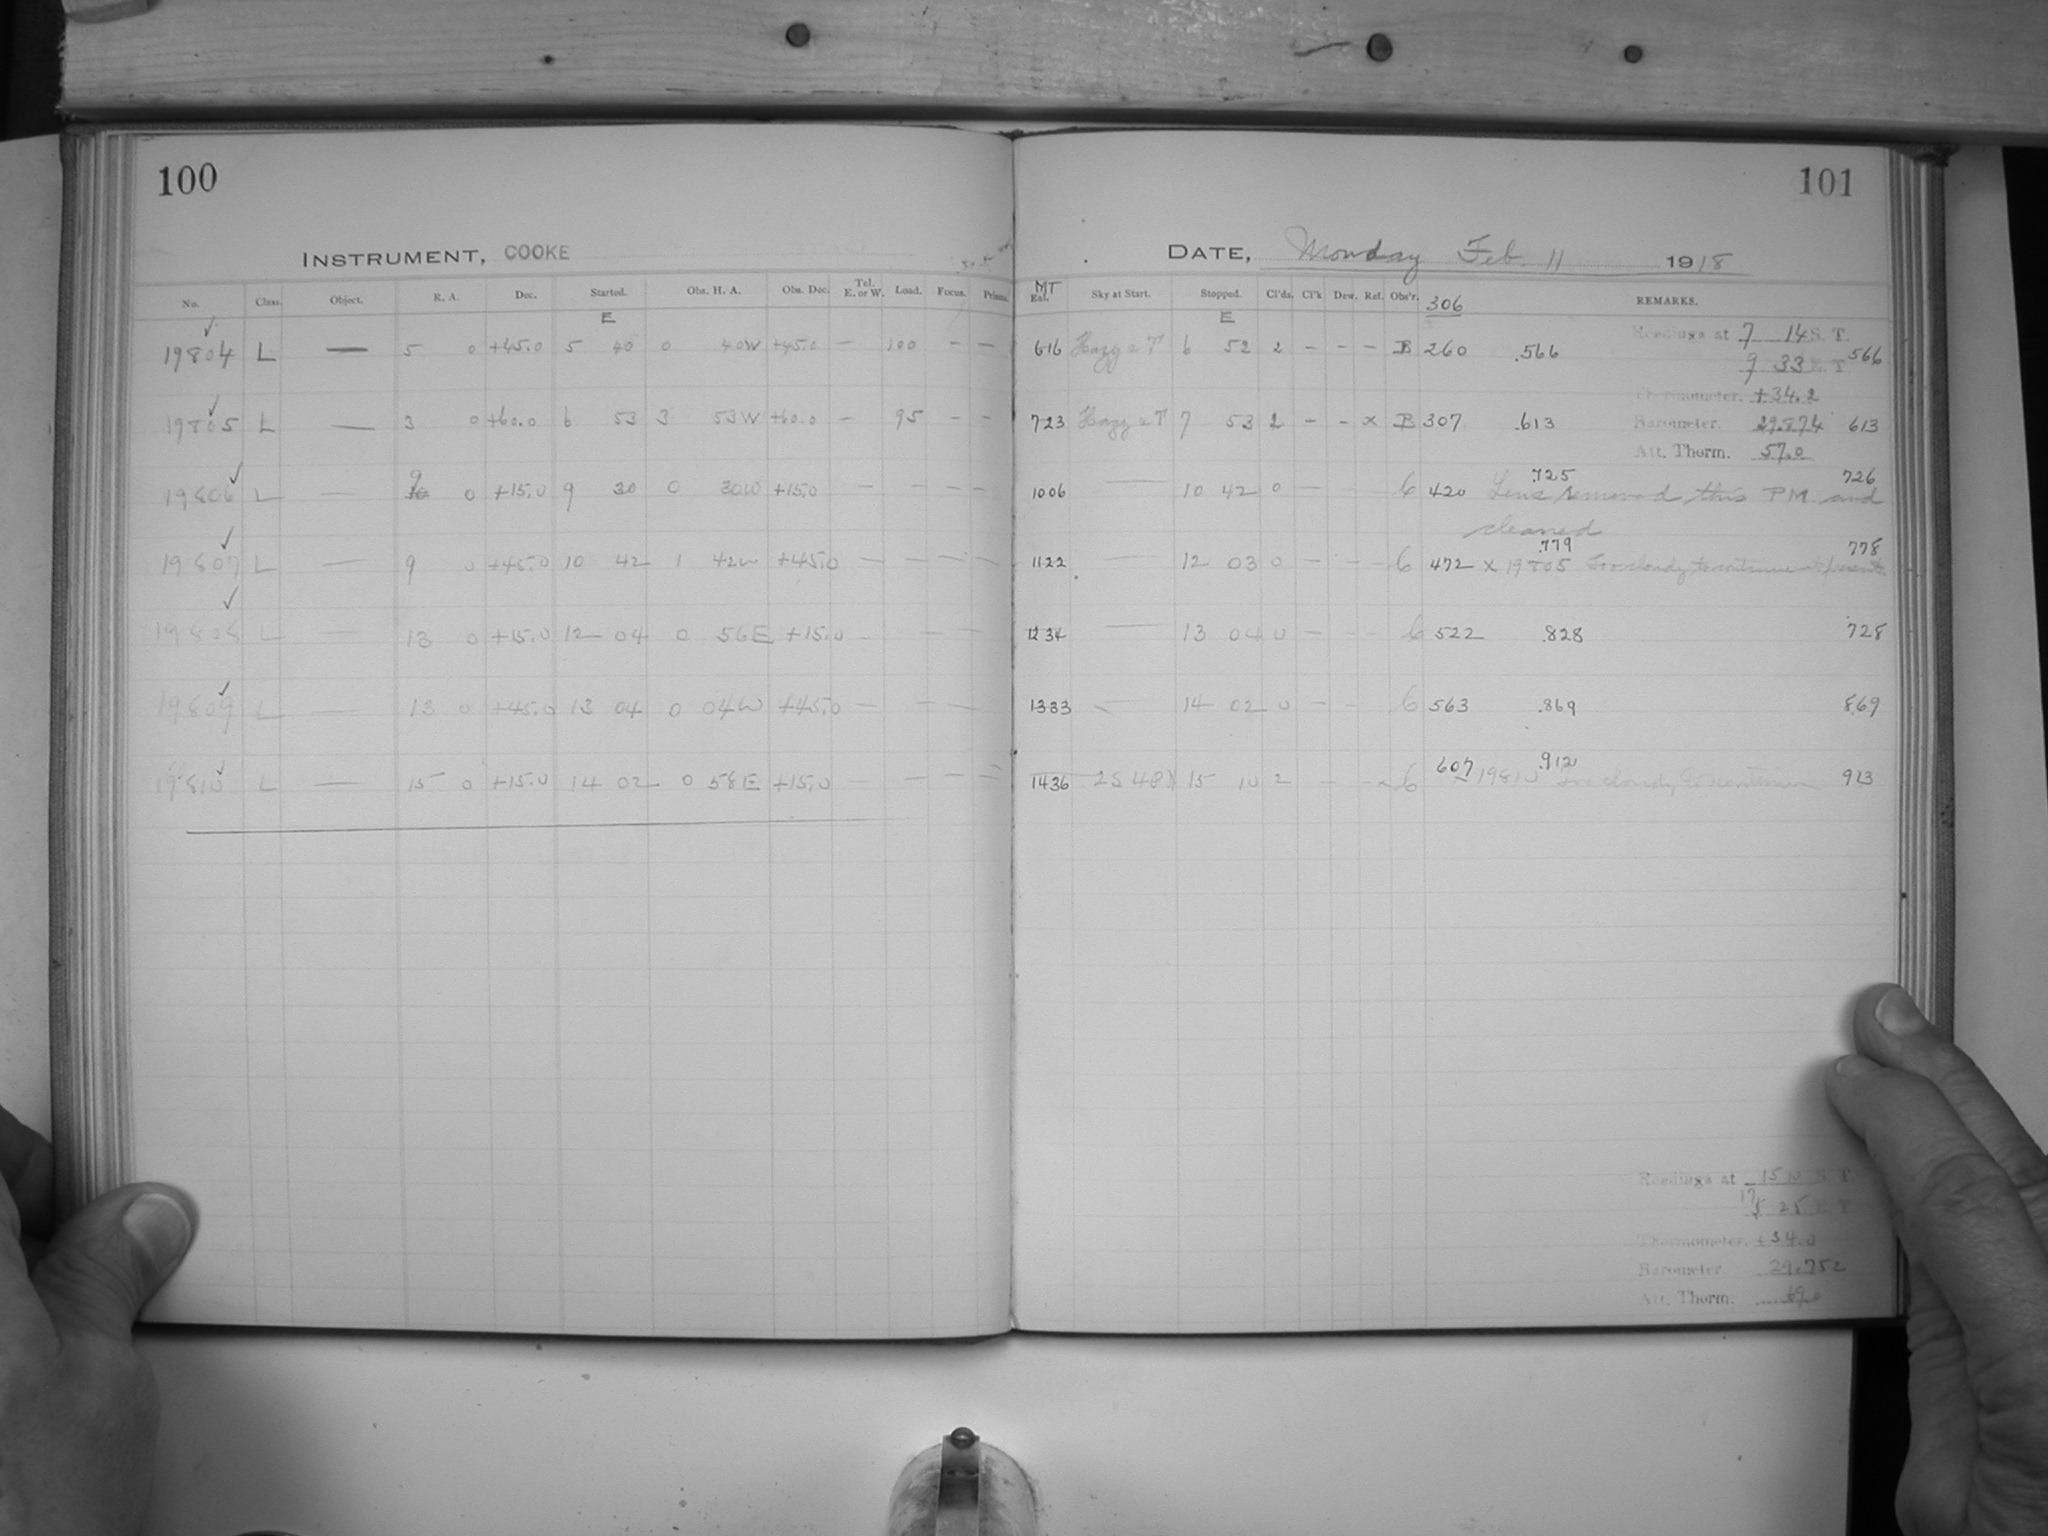 100
INSTRUMENT, COOKE
No. Class. Object. R. A. Dec. Started. Obs. H. A. Obs. Dec. Tel. E. or W. Load. Focus. Prisms.
E
19804 L — 5 0 +45.0 5 40 0 40W +45.0 — 100 — —
19805 L — 3 0 +60.0 6 53 3 53W +60.0 — 95 — —
19806 L — 9 0 +15.0 9 30 0 30W +15.0 — — — —
19807 L — 9 0 +45.0 10 42 1 42W +45.0 — — — —
19808 L — 13 0 +15.0 12 04 0 56E +15.0 — — —
19809 L — 13 0 +45.0 13 04 0 04W +45.0 — — —
19810 L — 15 0 +15.0 14 02 0 58E +15.0 — — — —
101
DATE, Monday Feb. 11 1918
MT
Sky at Start. Stopped. Cl'ds. Cl'k Dew. Ref. Obs'r. 306 REMARKS.
E
616 Hazy 6 52 2 — — — B 260 .566 Readings at 7 14 S. T.
9 33 E. T. 566
Thermometer. +34.2
723 Hazy 7 53 2 — — x B 307 .613 Barometer. 29.874 613
Att. Therm. 57.0
.725 726
1006 — 10 42 0 — 6 420 Lens removed this P.M. and
cleaned
.779 778
1122 — 12 03 0 — — — 6 472 x 19805 Too cloudy to continue at present.
1234 — 13 04 0 — — 6 522 .828 728
1333 — 14 02 0 — — 6 563 .869 869
607 .912
1436 15 10 2 — — x 6 19810 Too cloudy to continue 913
Readings at 15 10 S. T.
25 E. T.
Thermometer. +34.0
Barometer. 29.752
Att. Therm.